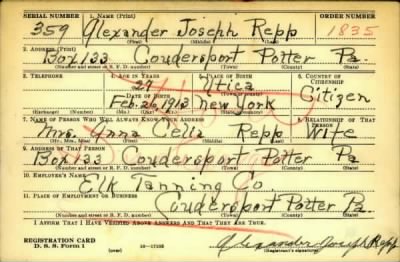 SERIAL NUMBER 1. NAME (Print) ORDER NUMBER
359 Alexander Joseph Repp 1835
(First) (Middle) (Last)
2. ADDRESS (Print)
Box 133 Coudersport Potter Pa.
(Number and street or R. F. D. number) (Town) (County) (State)
3. TELEPHONE 4. AGE IN YEARS 5. PLACE OF BIRTH 6. COUNTRY OF CITIZENSHIP
27 Utica
DATE OF BIRTH
Feb. 26, 1913 New York Citizen
(Exchange) (Number) (Mo.) (Day) (Yr.) (State or country)
7. NAME OF PERSON WHO WILL ALWAYS KNOW YOUR ADDRESS 8. RELATIONSHIP OF THAT PERSON
Mrs. Anna Celia Repp Wife
(Mr., Mrs., Miss) (First) (Middle) (Last)
9. ADDRESS OF THAT PERSON
Box 133 Coudersport Potter Pa
(Number and street or R. F. D. number) (Town) (County) (State)
10. EMPLOYER'S NAME
Elk Tanning Co
11. PLACE OF EMPLOYMENT OR BUSINESS
Coudersport Potter Pa.
(Number and street or R. F. D. number) (Town) (County) (State)
I AFFIRM THAT I HAVE VERIFIED ABOVE ANSWERS AND THAT THEY ARE TRUE.
REGISTRATION CARD
D. S. S. Form 1 (over) Alexander Joseph Repp
(Registrant's signature)